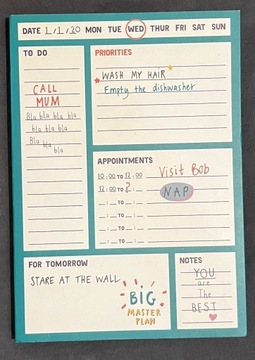 DATE 1/1/20 MON TUE WED THUR FRI SAT SUN
TO DO
CALL
MUM
Bla bla bla bla
bla bla bla
Bla bla
bla
PRIORITIES
WASH MY HAIR
Empty the dishwasher
APPOINTMENTS
10:00 TO 12:00 Visit Bob
13:00 TO 2: NAP
: TO :
: TO :
: TO :
: TO :
FOR TOMORROW
STARE AT THE WALL
BIG
MASTER
PLAN
NOTES
YOU
are
The
BEST